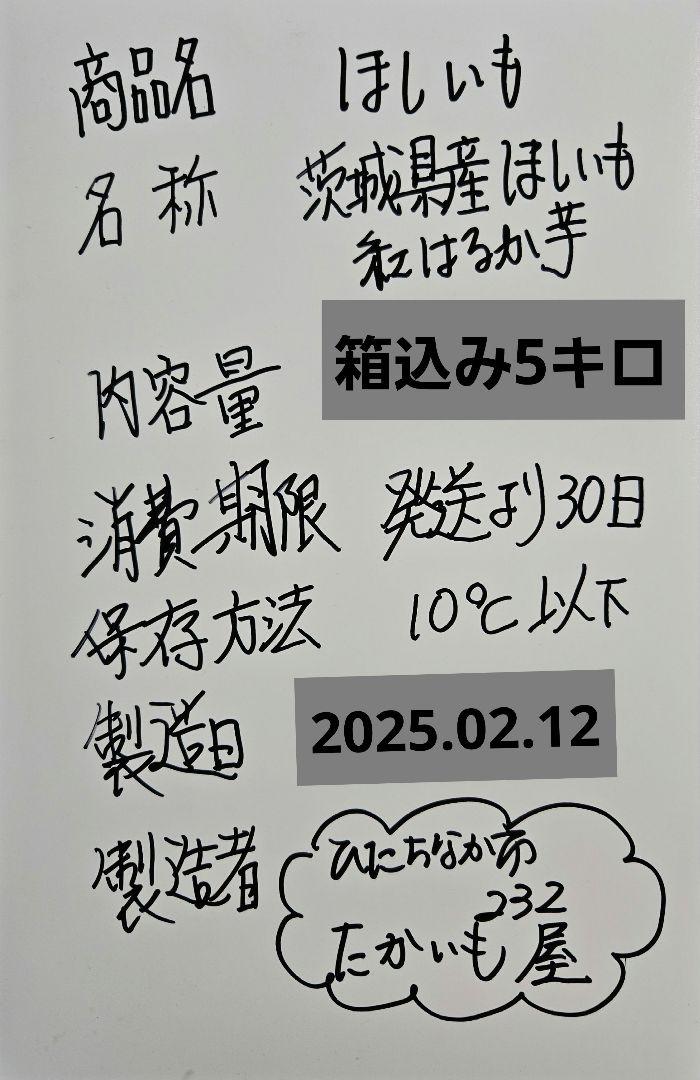 商品名 ほしいも
名称 茨城県産ほしいも
紅はるか芋
内容量 箱込み5キロ
消費期限 発送より30日
保存方法 10℃以下
製造日 2025.02.12
製造者 ひにちなか市
232
たかいも屋